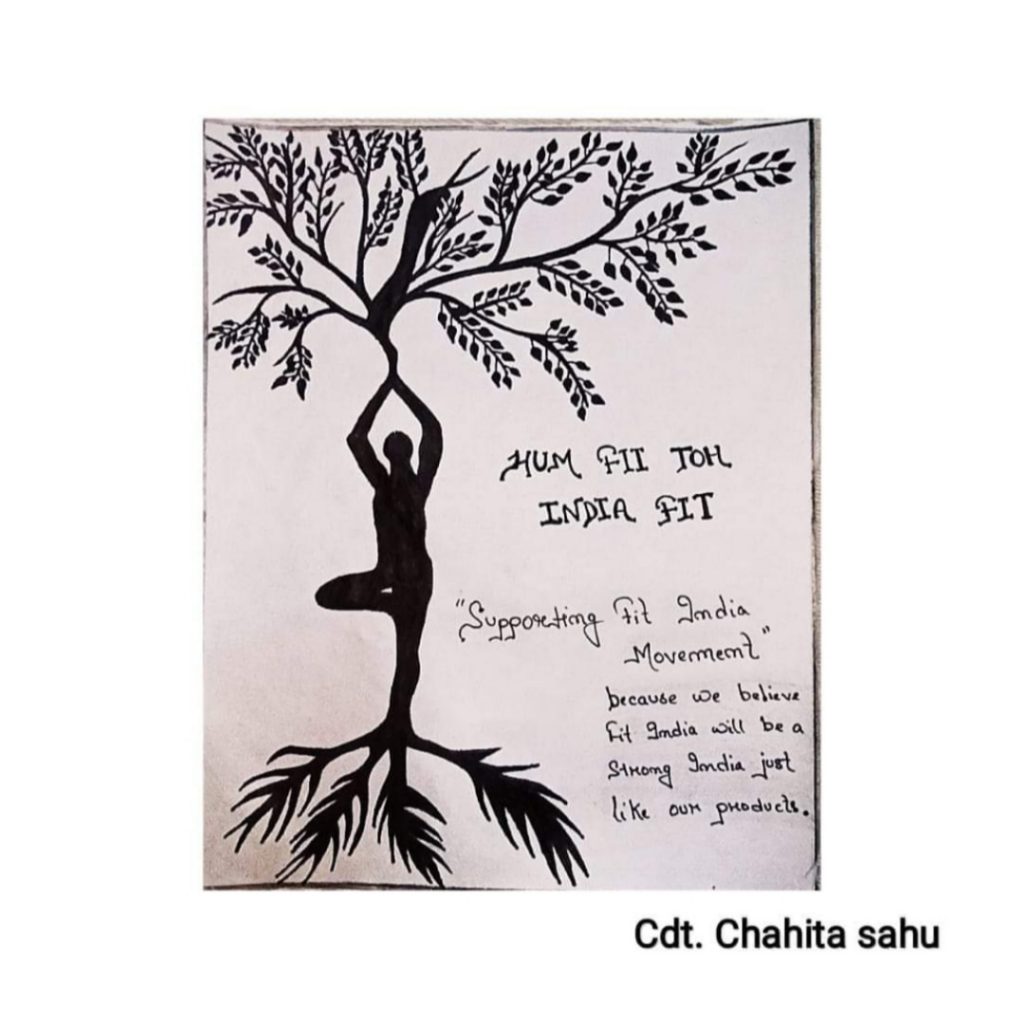 HUM FIT TOH
INDIA FIT
"Supporting Fit India
Movement"
because we believe
Fit India will be a
Strong India just
like our products.
Cdt. Chahita sahu